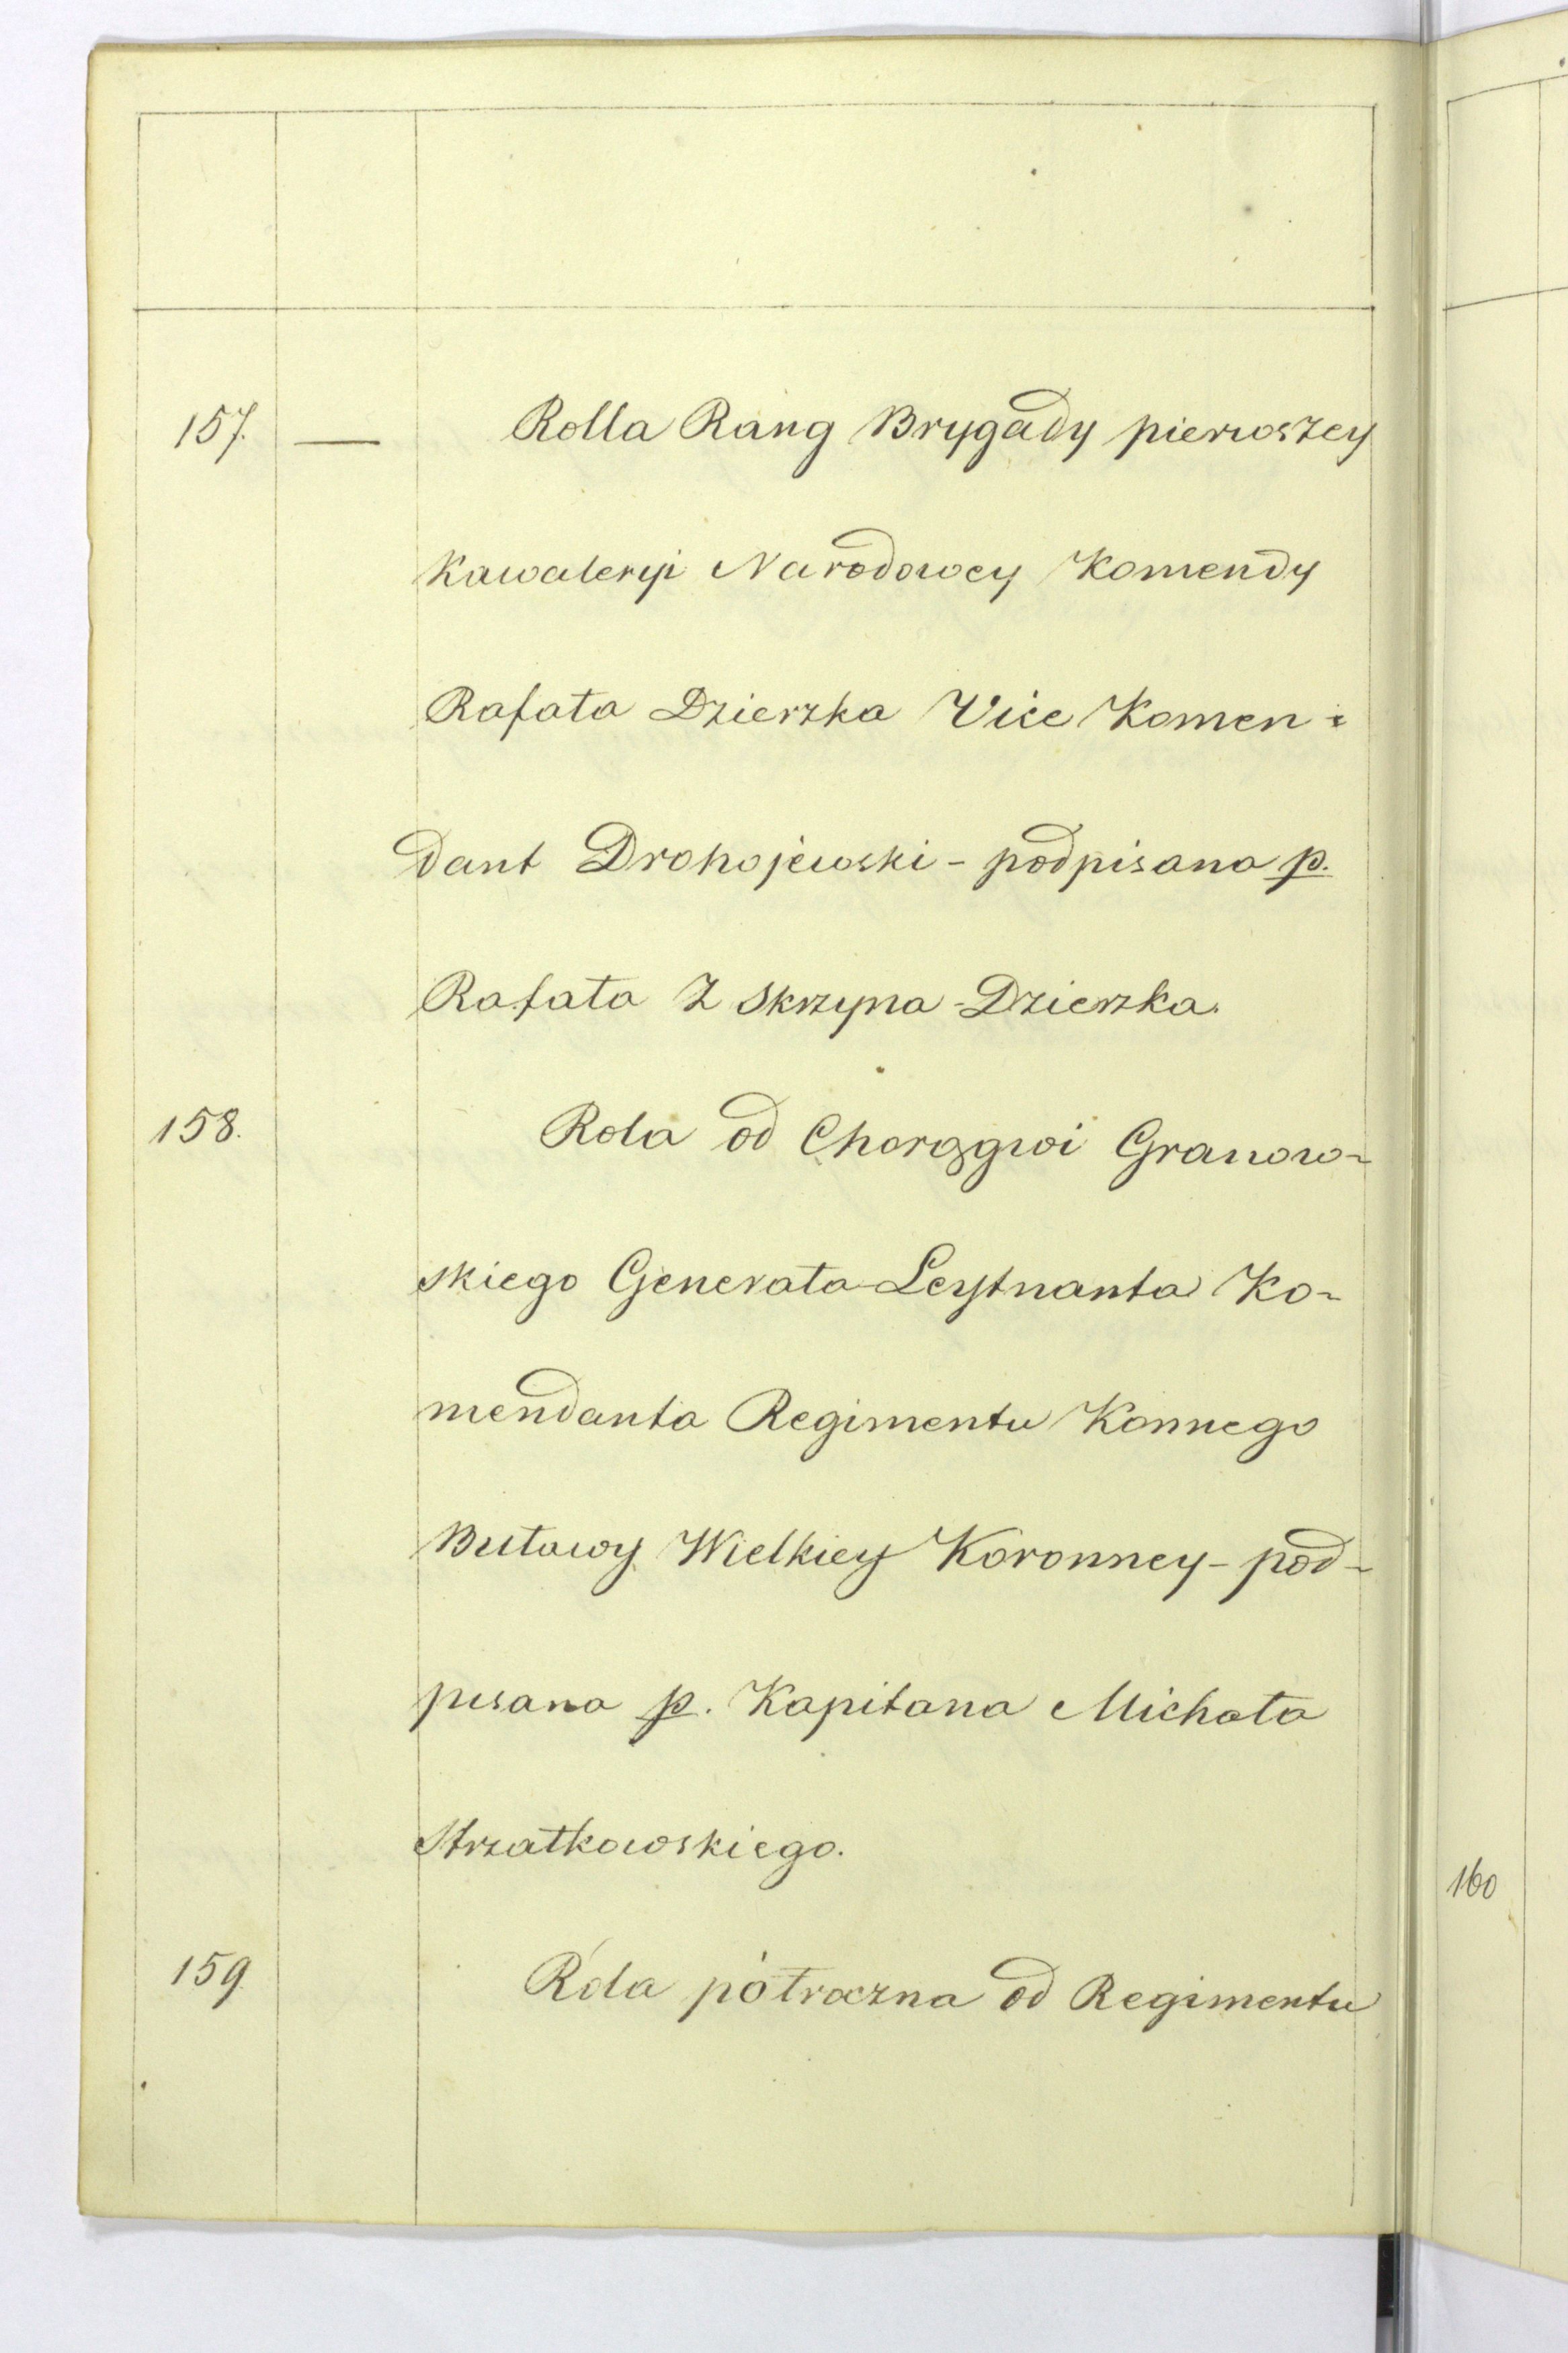 157. — Rolla Rang Brygady pierwszey
Kawaleryi Narodowey Komendy
Rafała Dzierzka Vice Komen=
dant Drohojewski - podpisana p.
Rafała Z Skrzyna-Dzierzka.
158. Rola od Chorągwi Granow-
skiego Generała-Leytnanta Ko-
mendanta Regimentu Konnego
Buławy Wielkiey Koronney - pod-
pisana p. Kapitana Michała
Strzałkowskiego.
159 Róla półroczna od Regimentu
160